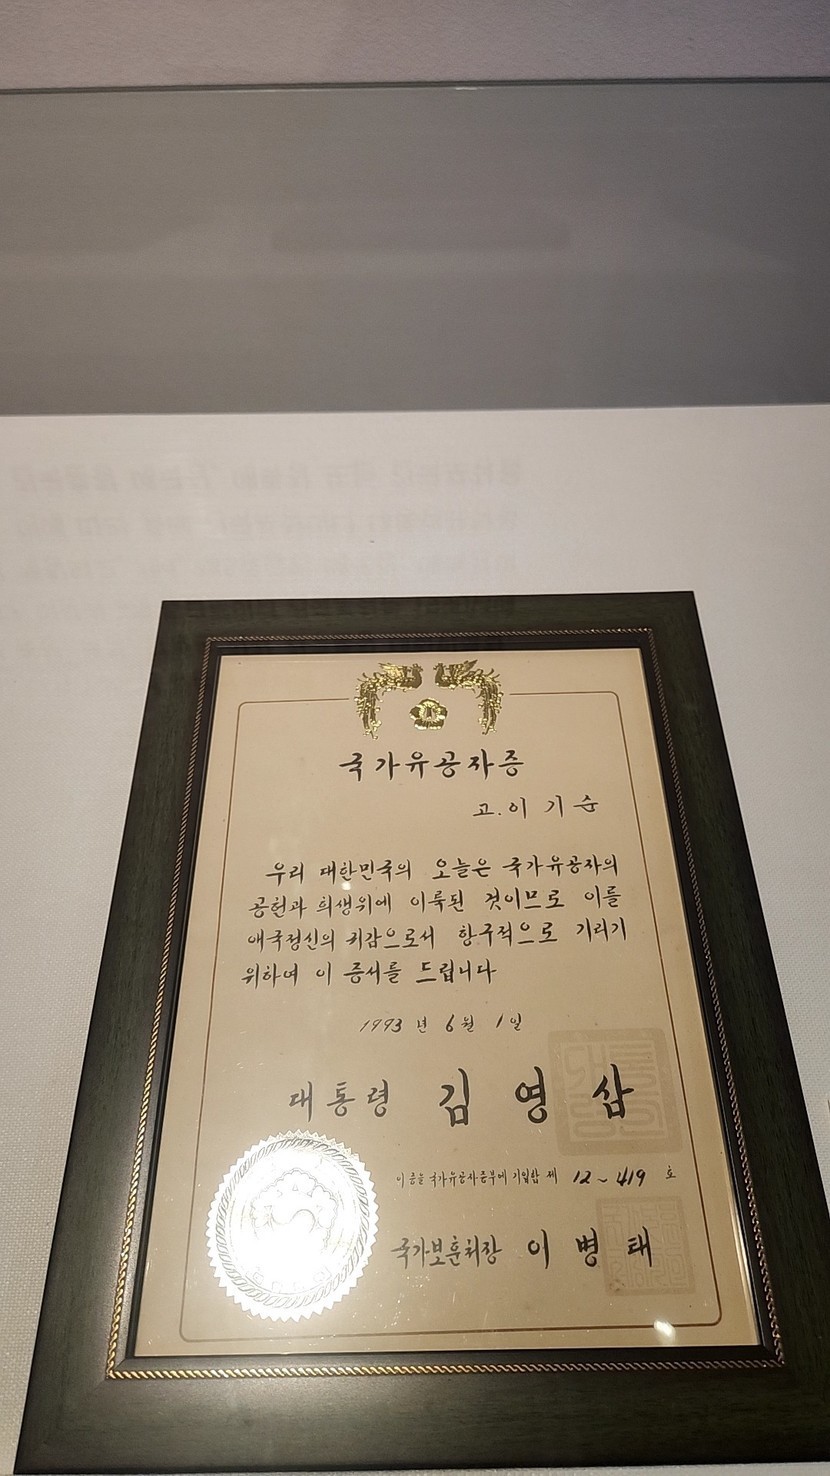 국가유공자증
고.이 기 순
우리 대한민국의 오늘은 국가유공자의
공헌과 희생위에 이룩된 것이므로 이를
애국정신의 귀감으로서 항구적으로 기리기
위하여 이 증서를 드립니다
1993 년 6 월 1 일
대통령 김 영 삼
이 증을 국가유공자증부에 기입함 제 12~419 호
국가보훈처장 이 병 태